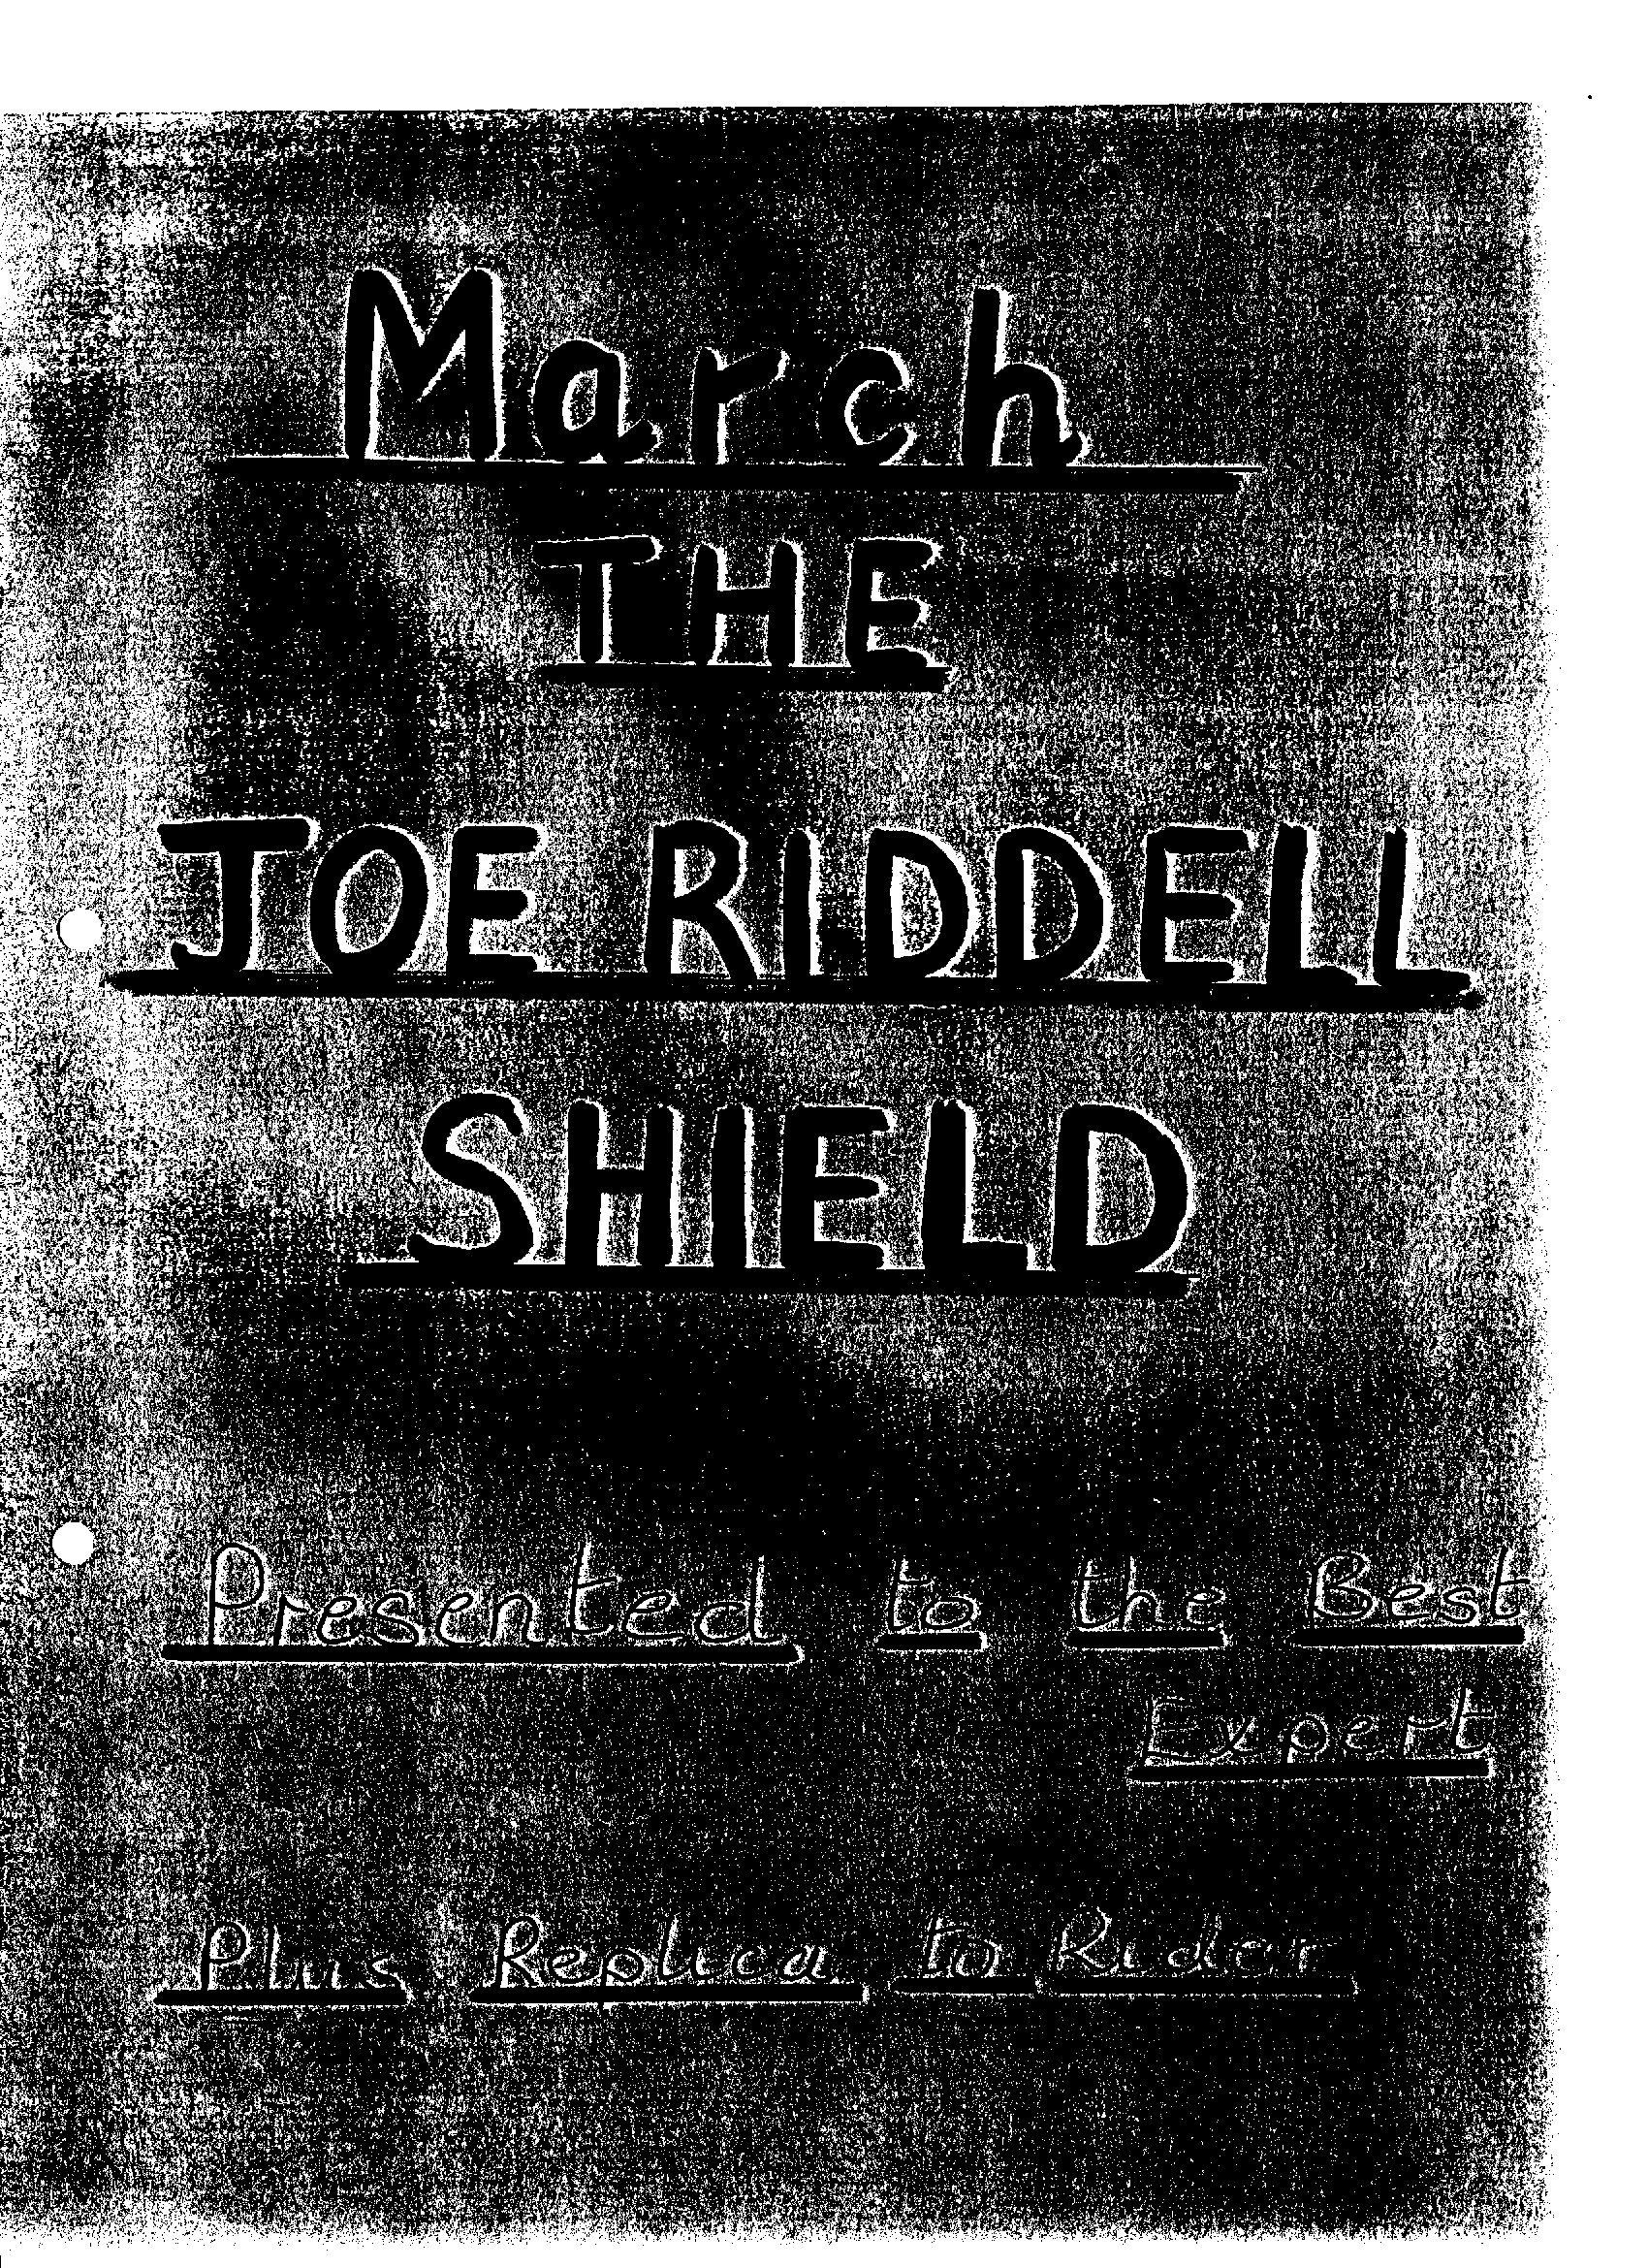 March
THE
JOE RIDDELL
SHIELD
Presented to the Best
Expert
Plus Replica to Rider